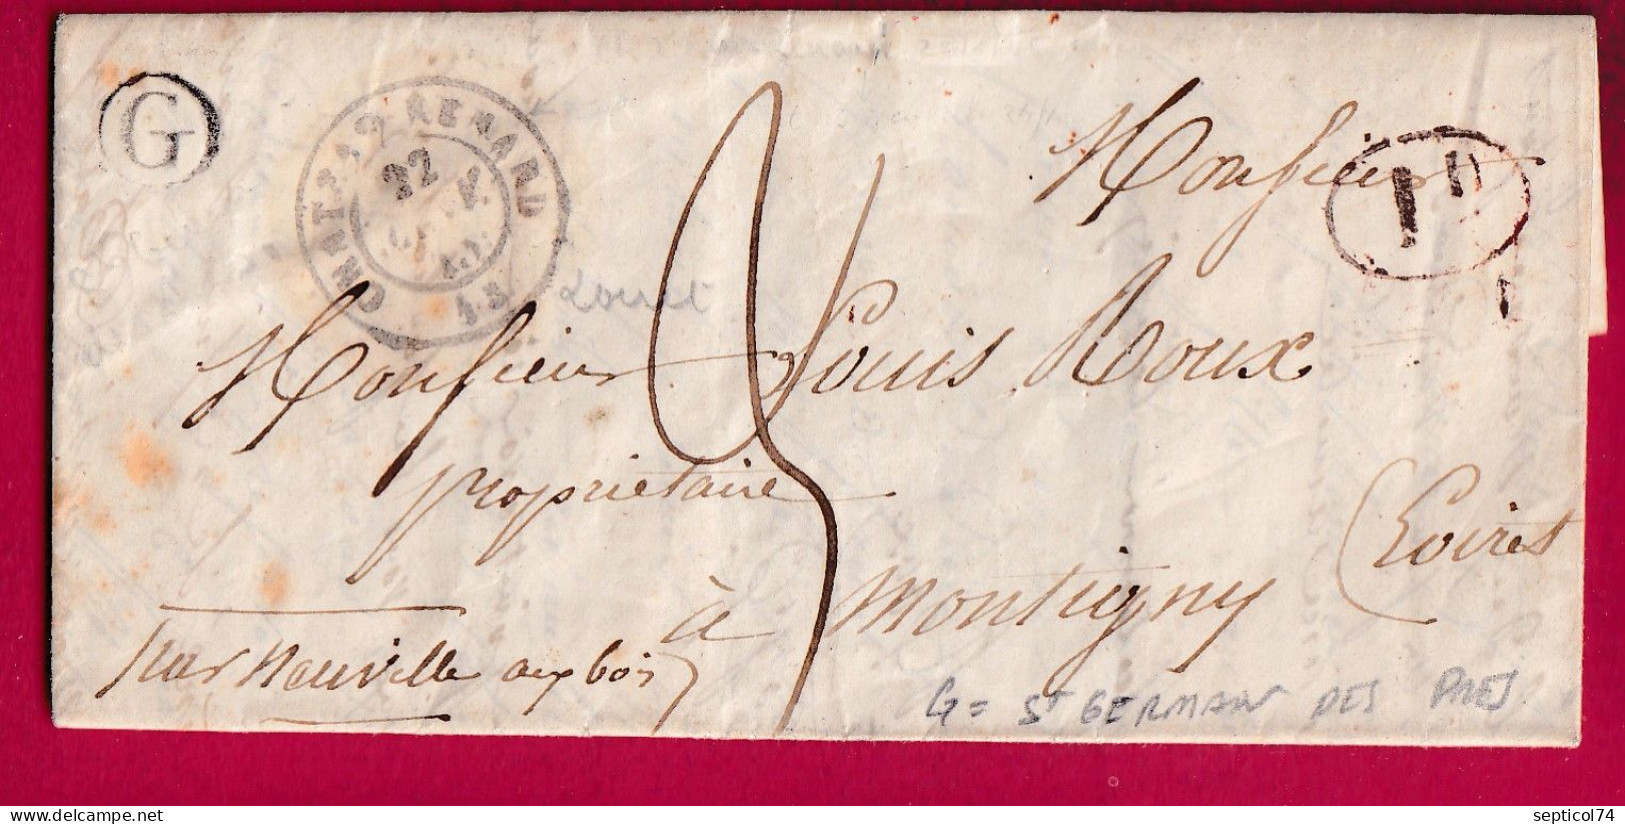 G
CHATEAU RENARD
22
48
1D
Monsieur
Loiret
Monsieur Louis Roux
propriétaire
à Montigny (Loiret
par Neuville aux bois
G = ST GERMAIN DES PRES
septicol74